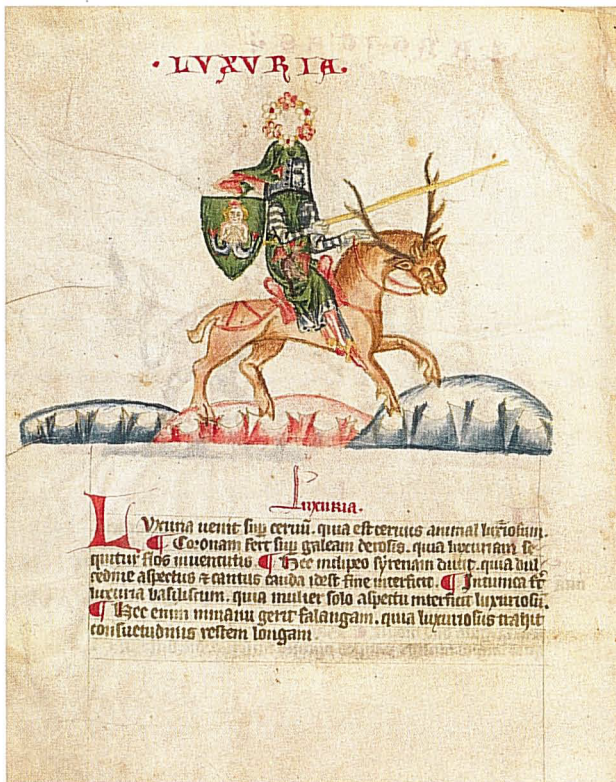 · LVXURIA ·
Luxuria.
Luxuria uenit sup ceruū. quia est ceruus animal luxiosum.
¶ Coronam fert sup galeam de rosis. quia luxuriam se
quitur flos iuuentutis. ¶ Hec in clipeo syrenam ducit. quia dul
cedine aspectus ⁊ cantus cauda idest fine interficit. ¶ In tunica
luxuria basiliscum. quia mulier solo aspectu interficit luxuriosū.
¶ Hec enim in manu gerit falangam. quia luxuriosus trahit
consuetudinis restem longam.